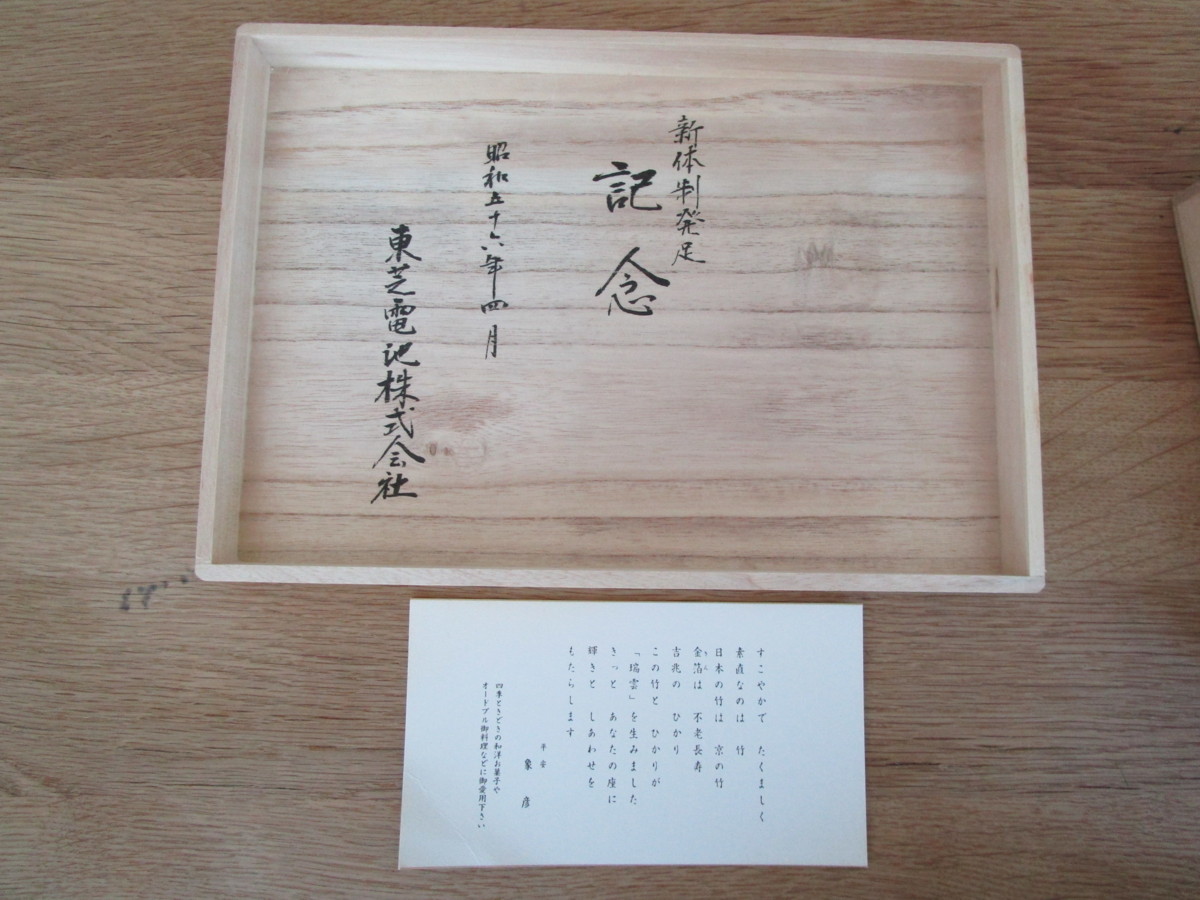 新体制発足
記念
昭和五十六年四月
東芝電池株式会社
すこやかで たくましく
素直なのは 竹
日本の竹は 京の竹
金箔は 不老長寿
吉兆の ひかり
この竹と ひかりが
「瑞雲」を生みました
きっと あなたの座に
輝きと しあわせを
もたらします
平安
象彦
四季ときどきの和洋お菓子や
オードブル御料理などに御愛用下さい